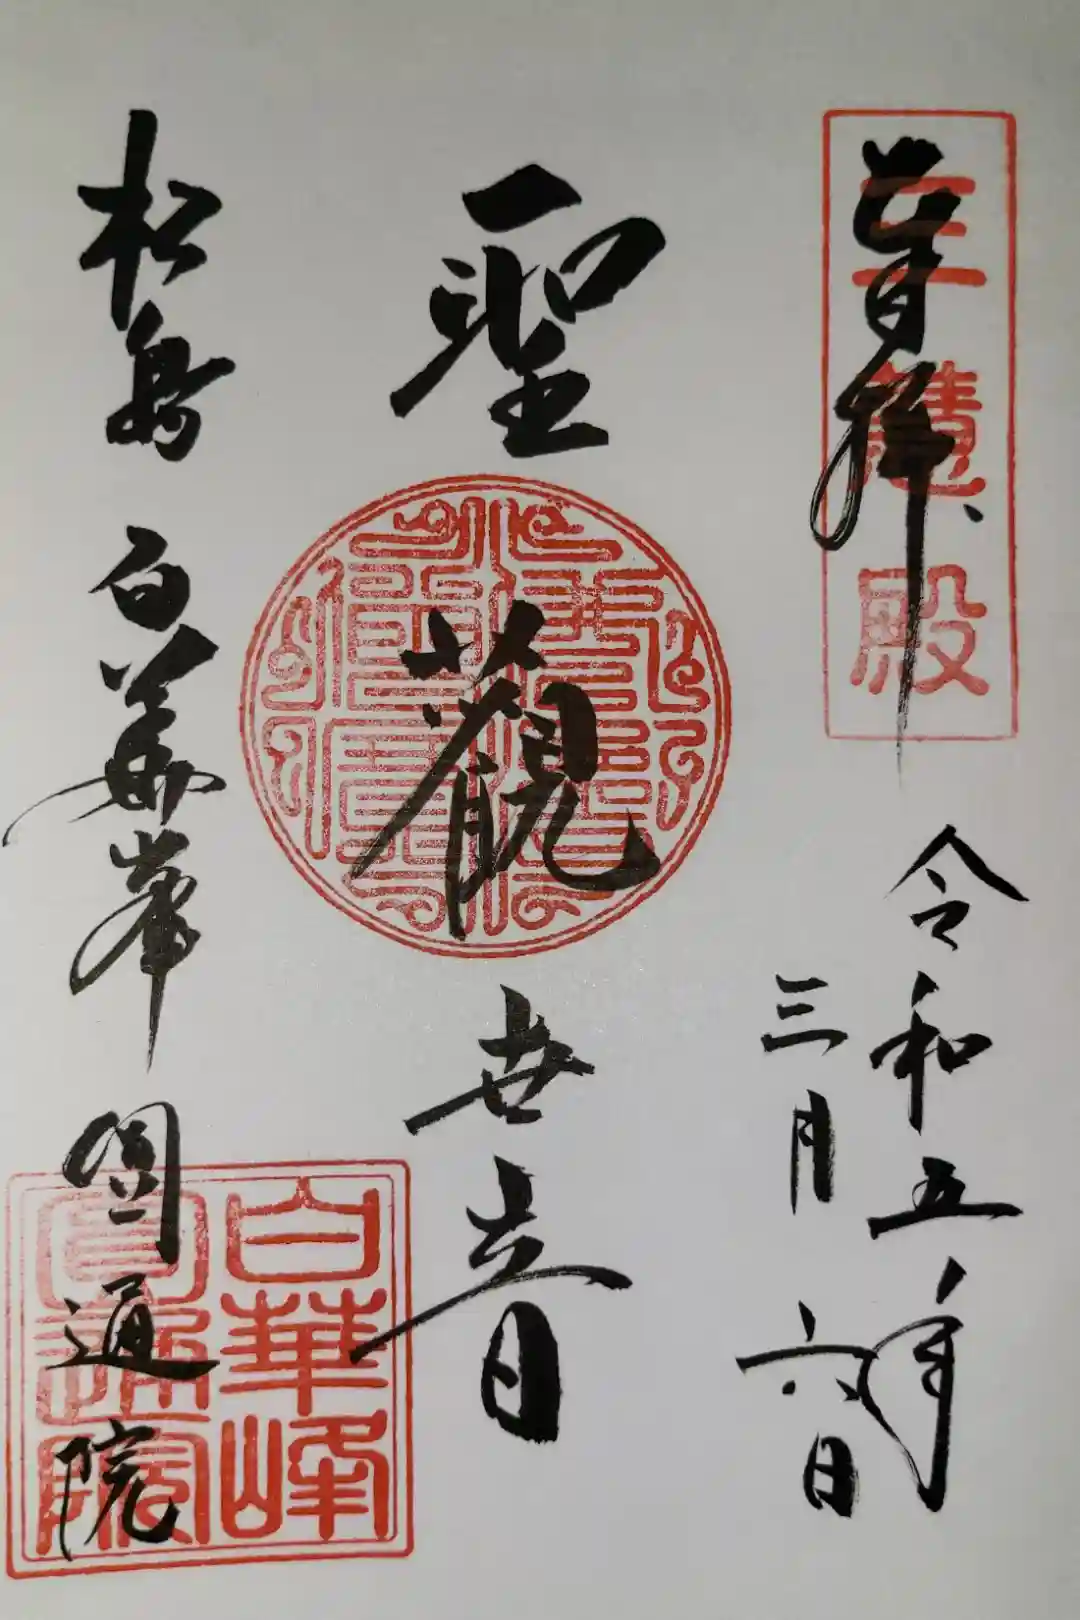 三慧殿
拝
令和五年
三月六日
聖観世音
松島 白華峯 圓通院
白華峰
圓通院